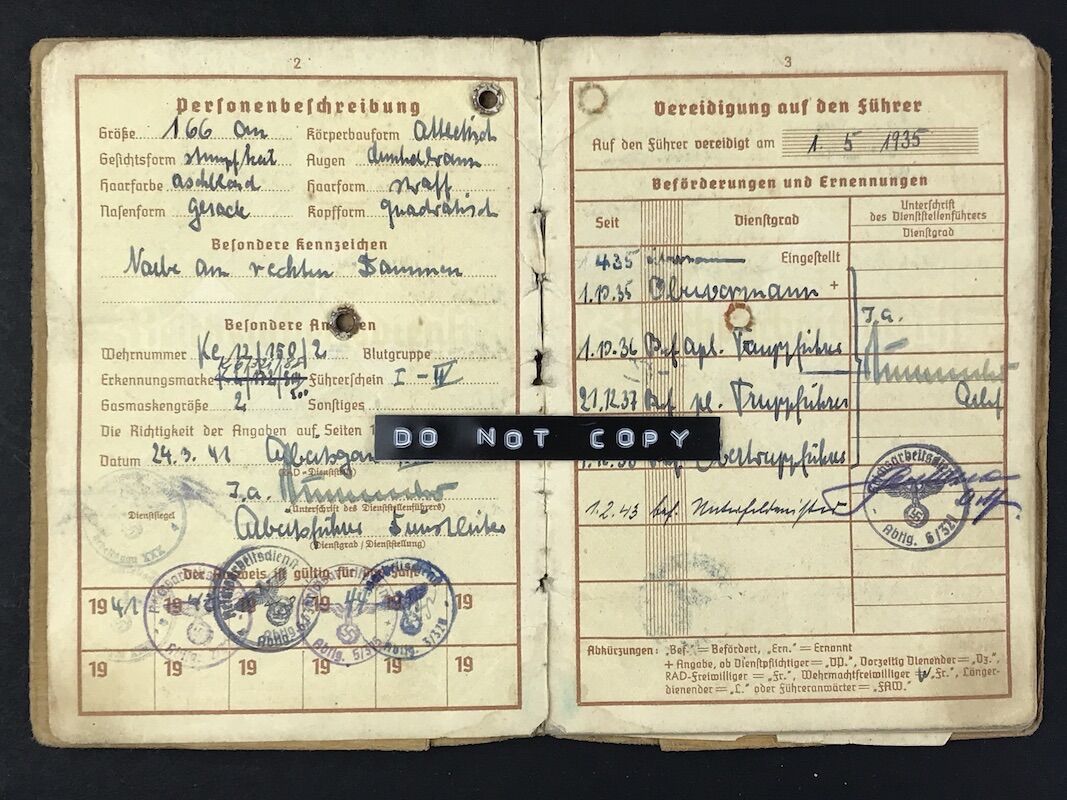 2
Personenbeschreibung
Größe 166 cm Körperbauform Athletisch
Gesichtsform stumpfkeil Augen dunkelbraun
Haarfarbe aschblond Haarform straff
Nasenform Gerade Kopfform Quadratisch
Besondere Kennzeichen
Narbe am rechten Daumen
Besondere An en
Wehrnummer Ke 12/150/2 Blutgruppe
Erkennungsmarke Führerschein I - IV
Gasmaskengröße 2 Sonstiges
Die Richtigkeit der Angaben auf Seiten 1
Datum 24.3.41
(RAD-Dienststelle)
J.a.
Dienstsiegel
(Unterschrift des Dienststellenführers)
Arbeitsführer
(Dienstgrad / Dienststellung)
Der Ausweis ist gültig für
1941 19 19 1944 19 19
19 19 19 19 19 19
Abtlg. 5/32
3
Vereidigung auf den Führer
Auf den Führer vereidigt am 1. 5 1935
Beförderungen und Ernennungen
Seit Dienstgrad Unterschrift des Dienststellenführers
Dienstgrad
1 4 35 Eingestellt
1.10.35 Obervormann +
J.a.
1.10.36 Bef. apl. Truppführer
21.12.37 Bef. pl. Truppführer
DO NOT COPY
Bef. Obertruppführer
1.2.43 bef. Unterfeldmeister
Reichsarbeitsdienst
Abtlg. 6/320
Abkürzungen: „Bef.“ = Befördert, „Ern.“ = Ernannt
+ Angabe, ob Dienstpflichtiger = „DP.“, Vorzeitig Dienender = „Vz.“,
RAD-Freiwilliger = „Fr.“, Wehrmachtfreiwilliger = „W Fr.“, Länger-
dienender = „L.“ oder Führeranwärter = „FAW.“